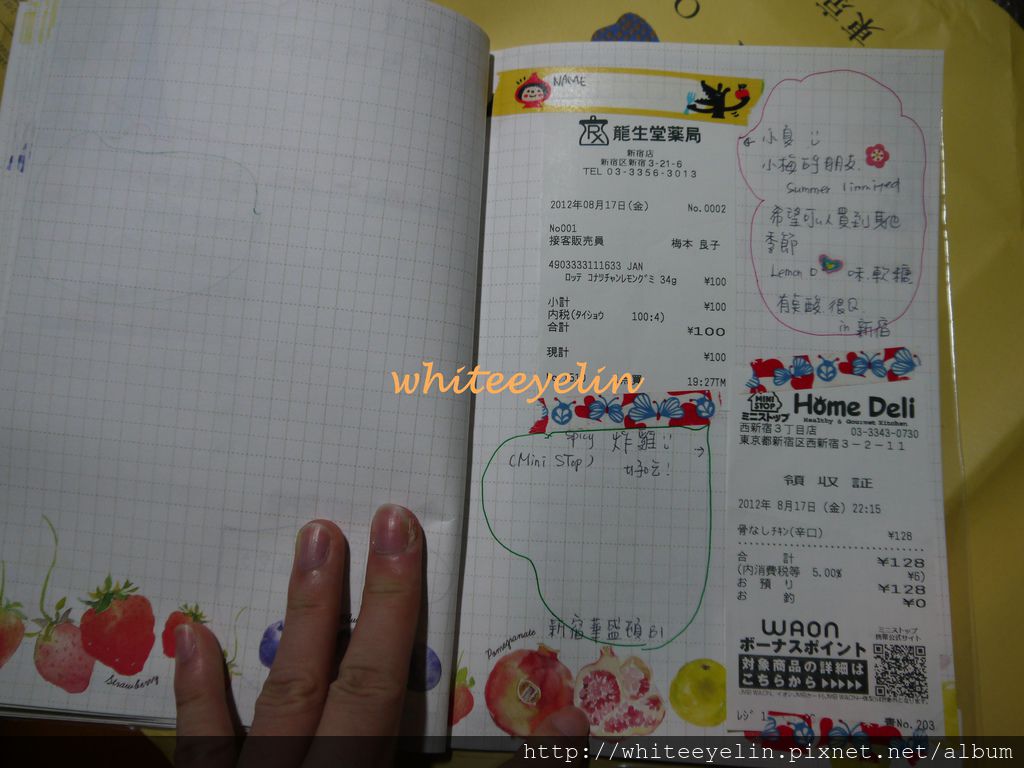 東京
NAME
龍生堂薬局
新宿店
新宿区新宿3-21-6
TEL 03-3356-3013
2012年08月17日(金) No.0002
No001
接客販売員 梅本 良子
4903333111633 JAN
ロッテ コナツチャンレモングミ 34g ¥100
小計 ¥100
内税(タイショウ 100:4)
合計 ¥100
現計 ¥100
19:27TM
小夏
小梅的朋友
Summer limited
希望可以買到其他
季節
Lemon 味軟糖
有點酸.很Q.
in 新宿
whiteeyelin
spicy 炸雞
(Mini STop) 好吃!
新宿華盛頓 B1
MINI STOP
ミニストップ
Home Deli
Healthy & Gourmet Kitchen
西新宿3丁目店 03-3343-0730
東京都新宿区西新宿3-2-11
領収証
2012年 8月17日(金) 22:15
骨なしチキン(辛口) ¥128
合計 ¥128
(内消費税等 5.00% ¥6)
お預り ¥128
お釣 ¥0
WAON
ボーナスポイント
対象商品の詳細は
こちらから
ミニストップ
携帯公式サイト
レジ 1
責No.203
Strawberry
Pomegranate
http://whiteeyelin.pixnet.net/album